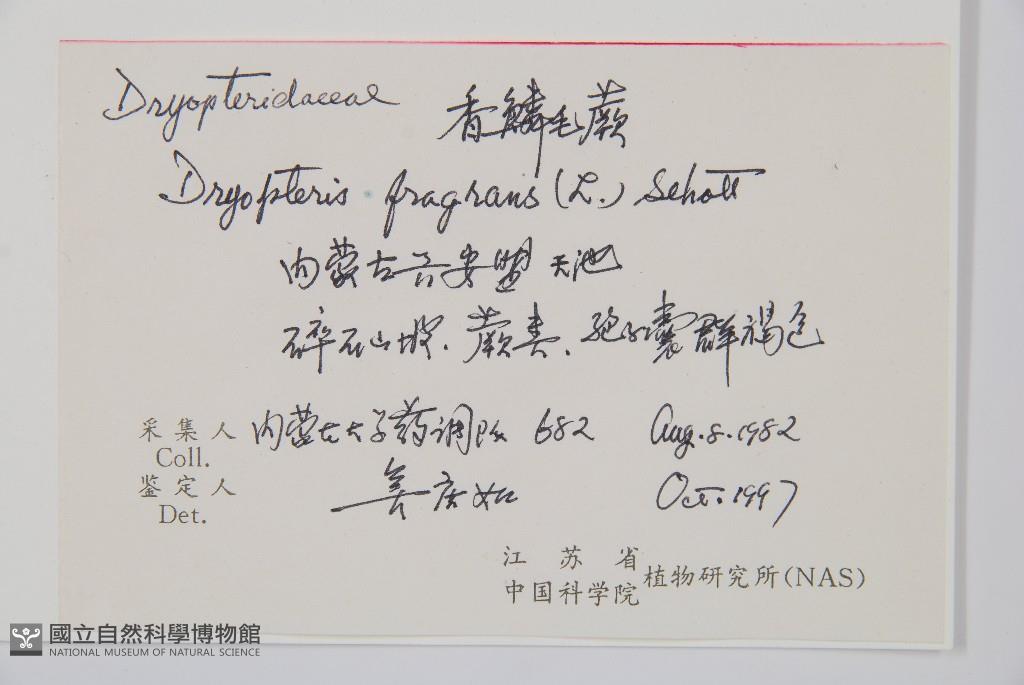 Dryopteridaceae 香鳞毛蕨
Dryopteris fragrans (L.) Schott
内蒙古兴安盟 天池
碎石山坡. 蕨类. 孢子囊群褐色
采集人 内蒙古大学药调队 682 Aug. 8. 1982
Coll.
鉴定人 Oct. 1997
Det.
江苏省
中国科学院
植物研究所(NAS)
國立自然科學博物館
NATIONAL MUSEUM OF NATURAL SCIENCE